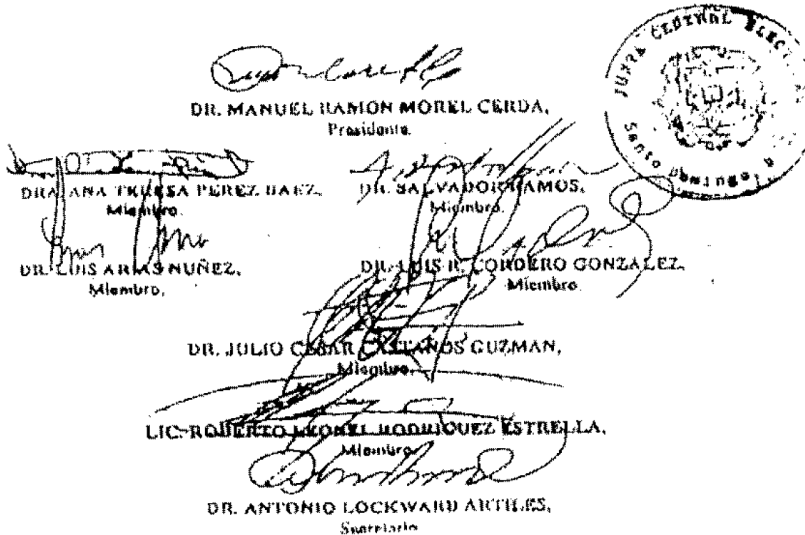 DR. MANUEL RAMON MOREL CERDA,
Presidente.
JUNTA CENTRAL
DRA. ANA TERESA PEREZ BAEZ,
Miembro.
DR. SALVADOR RAMOS,
Miembro.
DR. LUIS ARIAS NUÑEZ,
Miembro,
DR. LUIS R. CORDERO GONZALEZ,
Miembro
DR. JULIO CESAR CASTAÑOS GUZMAN,
Miembro,
LIC. ROBERTO LEONEL RODRIGUEZ ESTRELLA,
Miembro
DR. ANTONIO LOCKWARD ARTILES,
Secretario